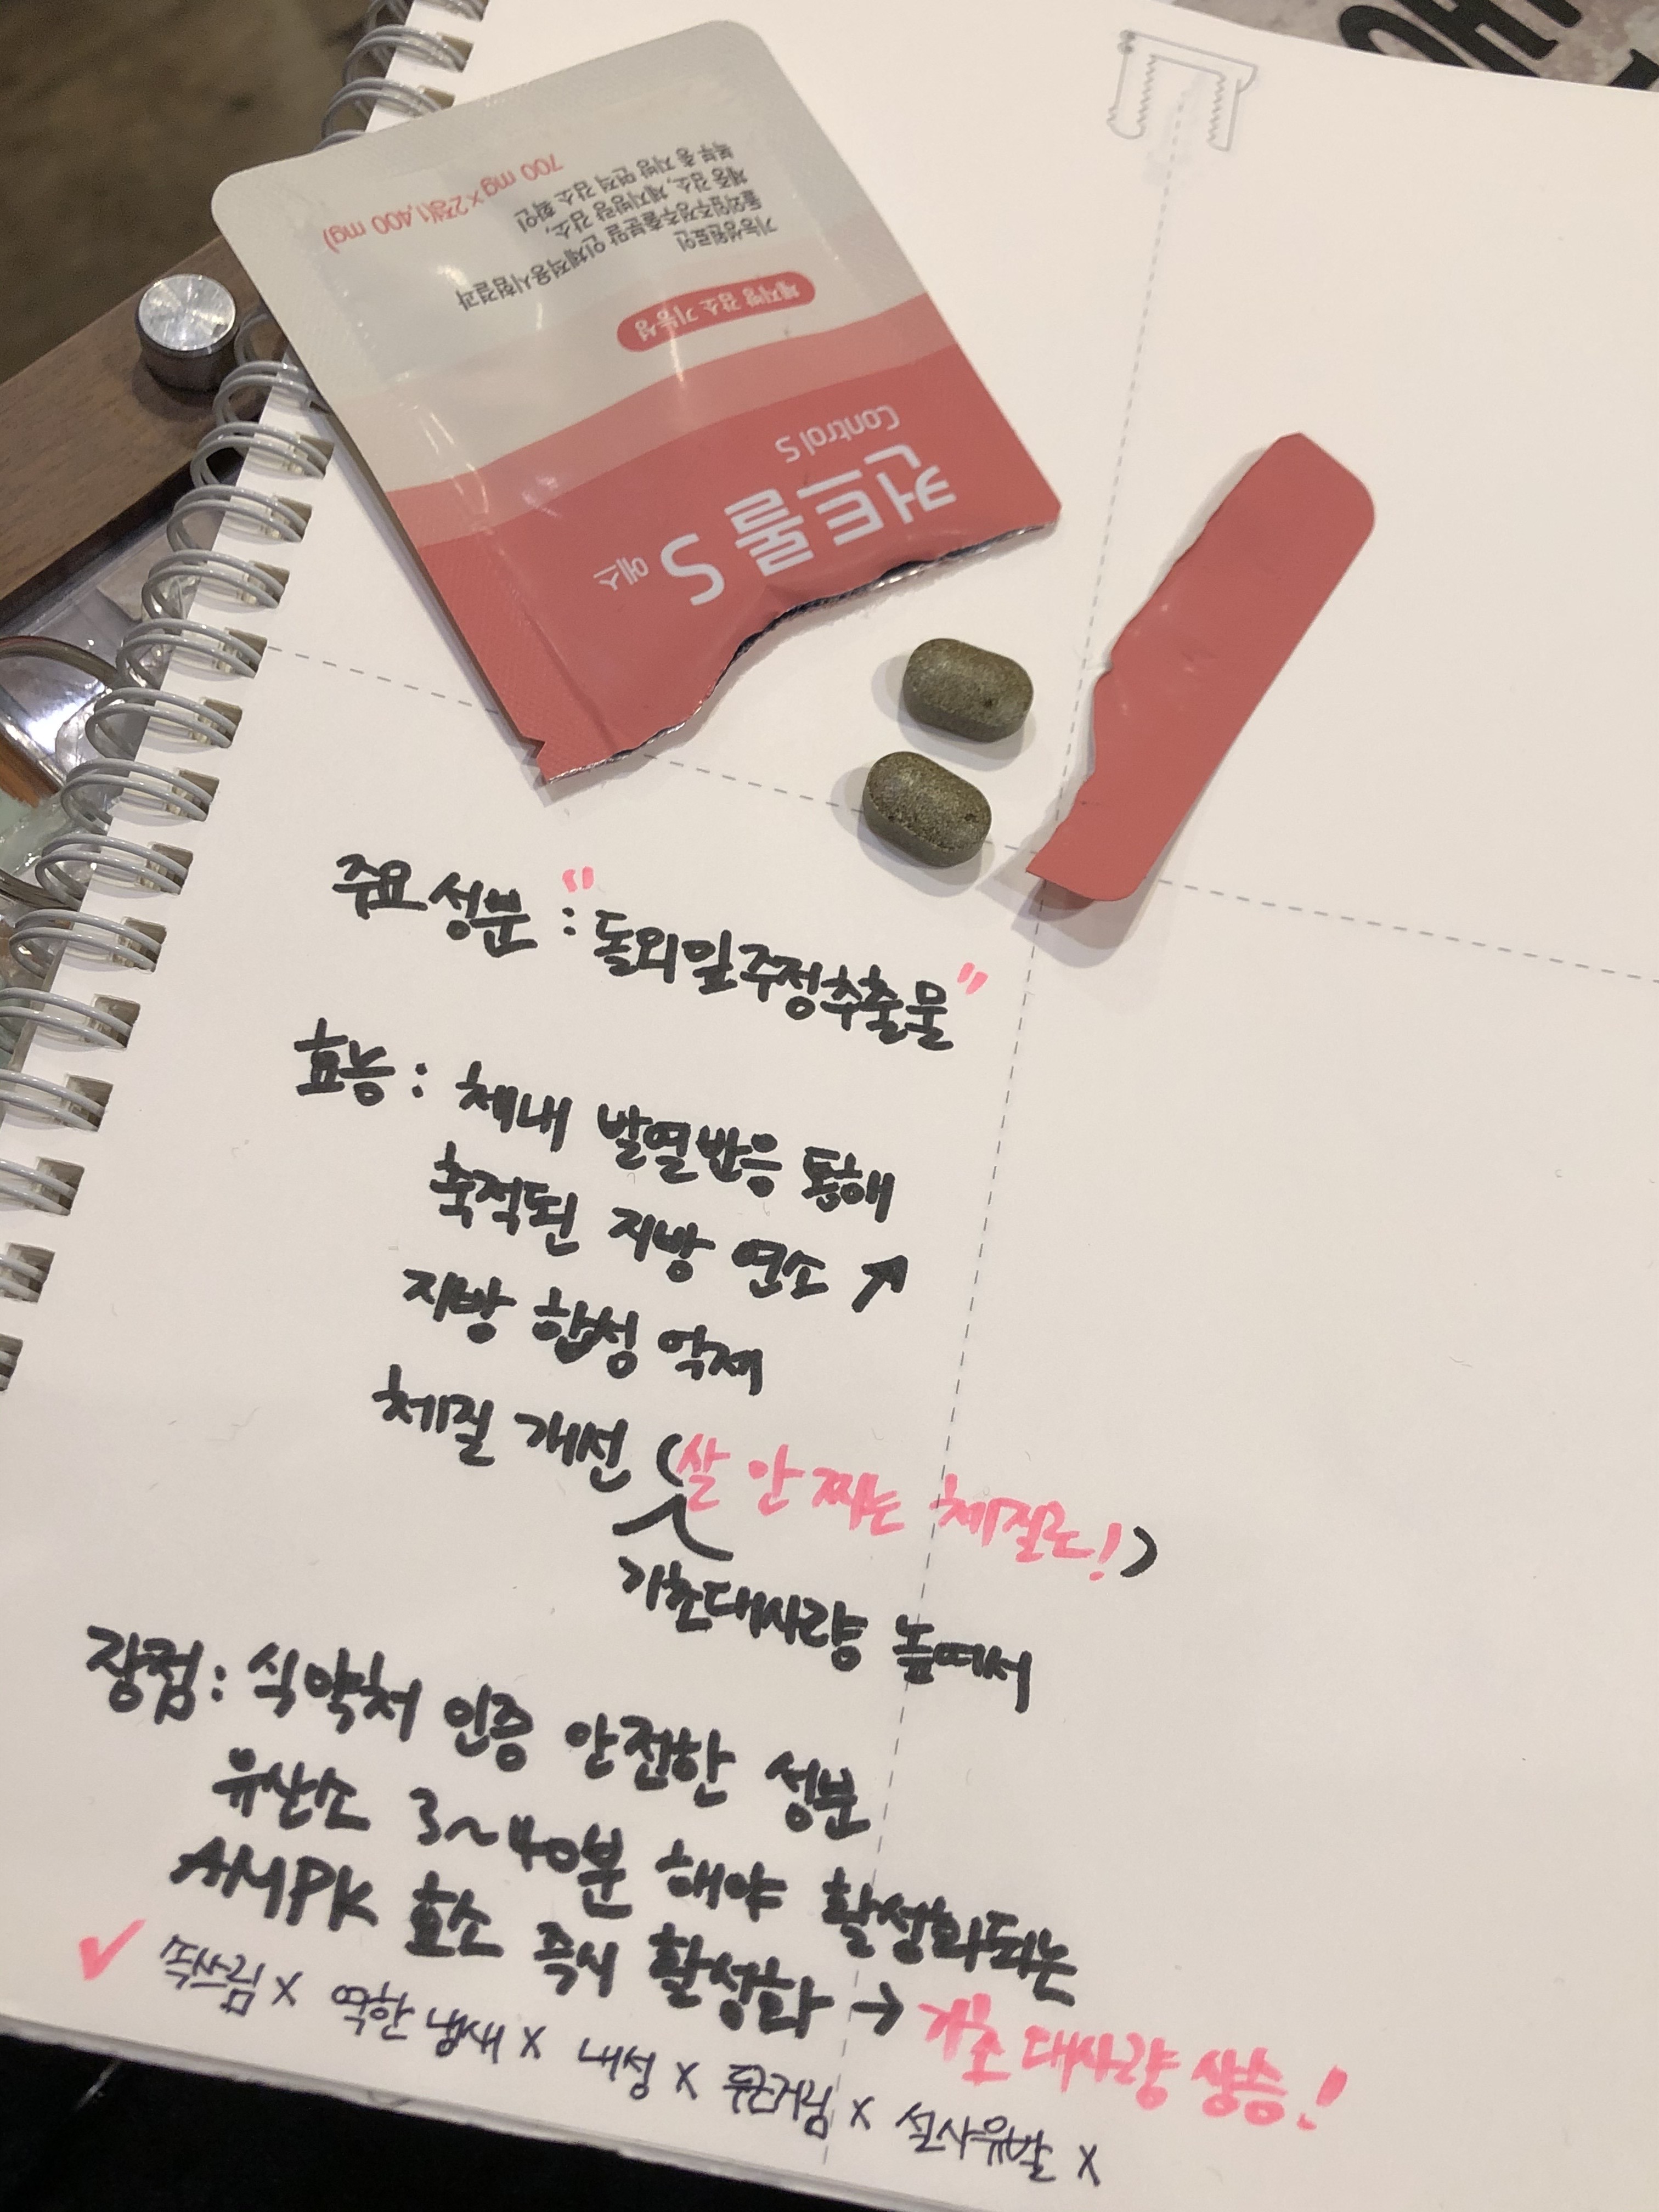 컨트롤 S 에스
Control S
체지방 감소 기능성
기능성원료인
돌외잎주정추출분말 인체적용시험결과
체중 감소, 체지방량 감소,
복부 총 지방 면적 감소 확인
700 mg×2정(1,400 mg)
OH
주요성분 : "돌외잎주정추출물"
효능 : 체내 발열반응 통해
축적된 지방 연소 ↗
지방 합성 억제
체질 개선 (살 안 찌는 체질로!)
기초대사량 높여서
장점 : 식약처 인증 안전한 성분
유산소 3~40분 해야 활성화되는
AMPK 효소 즉시 활성화 → 기초 대사량 상승!
✓ 속쓰림 X 역한 냄새 X 내성 X 두근거림 X 설사유발 X